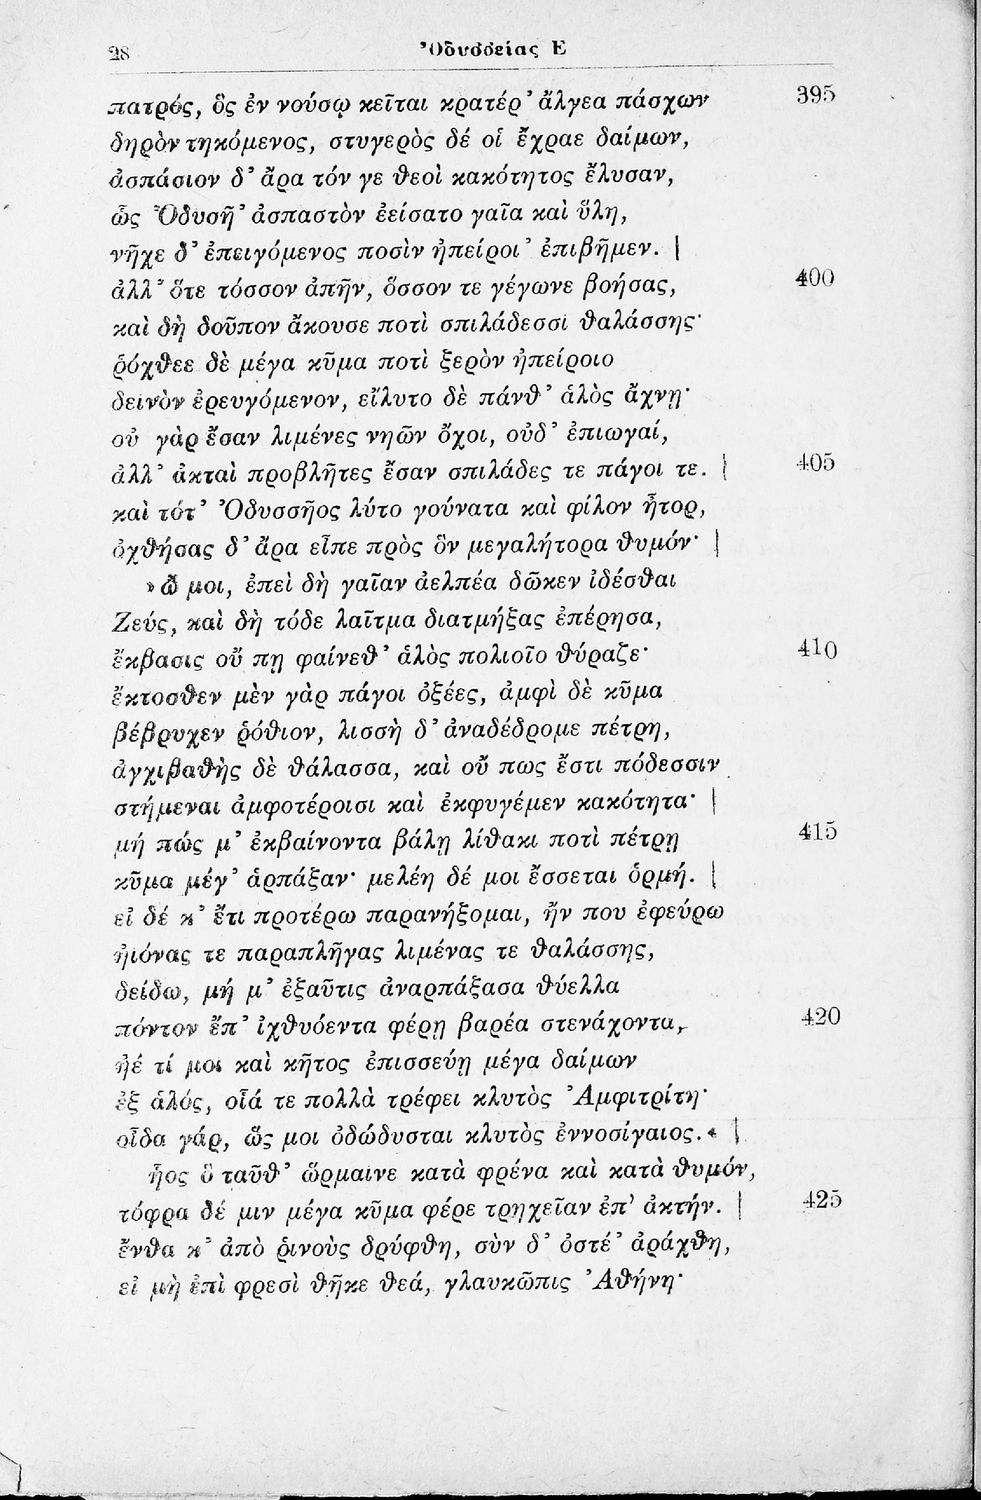 28 Ὀδυσσείας Ε
πατρός, ὃς ἐν νούσῳ κεῖται κρατέρ’ ἄλγεα πάσχων 395
δηρὸν τηκόμενος, στυγερὸς δέ οἱ ἔχραε δαίμων,
ἀσπάσιον δ’ ἄρα τόν γε θεοὶ κακότητος ἔλυσαν,
ὣς Ὀδυσῆ’ ἀσπαστὸν ἐείσατο γαῖα καὶ ὕλη,
νῆχε δ’ ἐπειγόμενος ποσὶν ἠπείροι’ ἐπιβῆμεν. |
ἀλλ’ ὅτε τόσσον ἀπῆν, ὅσσον τε γέγωνε βοήσας, 400
καὶ δὴ δοῦπον ἄκουσε ποτὶ σπιλάδεσσι θαλάσσης·
ῥόχθεε δὲ μέγα κῦμα ποτὶ ξερὸν ἠπείροιο
δεινὸν ἐρευγόμενον, εἴλυτο δὲ πάνθ’ ἁλὸς ἄχνῃ·
οὐ γὰρ ἔσαν λιμένες νηῶν ὄχοι, οὐδ’ ἐπιωγαί,
ἀλλ’ ἀκταὶ προβλῆτες ἔσαν σπιλάδες τε πάγοι τε. | 405
καὶ τότ’ Ὀδυσσῆος λύτο γούνατα καὶ φίλον ἦτορ,
ὀχθήσας δ’ ἄρα εἶπε πρὸς ὃν μεγαλήτορα θυμόν· |
»ὤ μοι, ἐπεὶ δὴ γαῖαν ἀελπέα δῶκεν ἰδέσθαι
Ζεύς, καὶ δὴ τόδε λαῖτμα διατμήξας ἐπέρησα,
ἔκβασις οὔ πῃ φαίνεθ’ ἁλὸς πολιοῖο θύραζε· 410
ἔκτοσθεν μὲν γὰρ πάγοι ὀξέες, ἀμφὶ δὲ κῦμα
βέβρυχεν ῥόθιον, λισσὴ δ’ ἀναδέδρομε πέτρη,
ἀγχιβαθὴς δὲ θάλασσα, καὶ οὔ πως ἔστι πόδεσσιν
στήμεναι ἀμφοτέροισι καὶ ἐκφυγέμεν κακότητα· |
μή πώς μ’ ἐκβαίνοντα βάλῃ λίθακι ποτὶ πέτρῃ 415
κῦμα μέγ’ ἁρπάξαν· μελέη δέ μοι ἔσσεται ὁρμή. |
εἰ δέ κ’ ἔτι προτέρω παρανήξομαι, ἤν που ἐφεύρω
ἠιόνας τε παραπλῆγας λιμένας τε θαλάσσης,
δείδω, μή μ’ ἐξαῦτις ἀναρπάξασα θύελλα
πόντον ἔπ’ ἰχθυόεντα φέρῃ βαρέα στενάχοντα, 420
ἠέ τί μοι καὶ κῆτος ἐπισσεύῃ μέγα δαίμων
ἐξ ἁλός, οἷά τε πολλὰ τρέφει κλυτὸς Ἀμφιτρίτη·
οἶδα γάρ, ὥς μοι ὀδώδυσται κλυτὸς ἐννοσίγαιος.« |
ἧος ὃ ταῦθ’ ὥρμαινε κατὰ φρένα καὶ κατὰ θυμόν,
τόφρα δέ μιν μέγα κῦμα φέρε τρηχεῖαν ἐπ’ ἀκτήν. | 425
ἔνθα κ’ ἀπὸ ῥινοὺς δρύφθη, σὺν δ’ ὀστέ’ ἀράχθη,
εἰ μὴ ἐπὶ φρεσὶ θῆκε θεά, γλαυκῶπις Ἀθήνη·